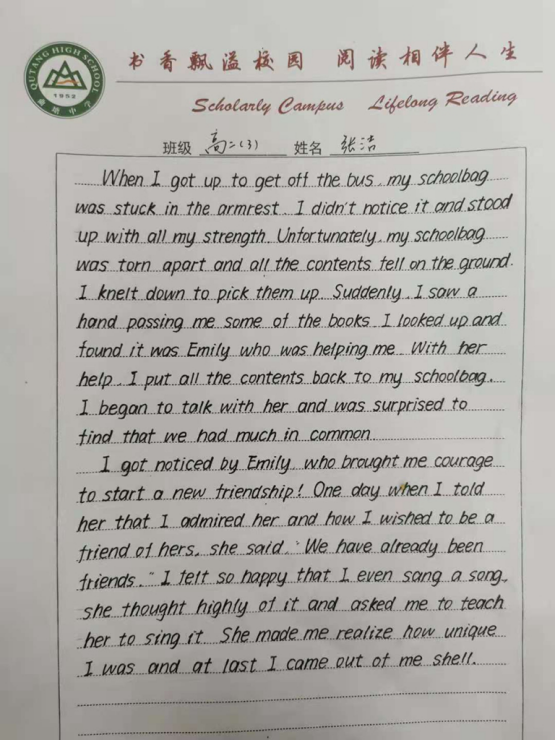 QUTANG HIGH SCHOOL
1952
曲塘中学
书香飘溢校园 阅读相伴人生
Scholarly Campus Lifelong Reading
班级 高二(3) 姓名 张洁
When I got up to get off the bus, my schoolbag
was stuck in the armrest. I didn't notice it and stood
up with all my strength. Unfortunately, my schoolbag
was torn apart and all the contents fell on the ground.
I knelt down to pick them up. Suddenly, I saw a
hand passing me some of the books. I looked up and
found it was Emily who was helping me. With her
help, I put all the contents back to my schoolbag.
I began to talk with her and was surprised to
find that we had much in common.
I got noticed by Emily, who brought me courage
to start a new friendship! One day when I told
her that I admired her and how I wished to be a
friend of hers, she said, "We have already been
friends." I felt so happy that I even sang a song,
she thought highly of it and asked me to teach
her to sing it. She made me realize how unique
I was and at last I came out of me shell.